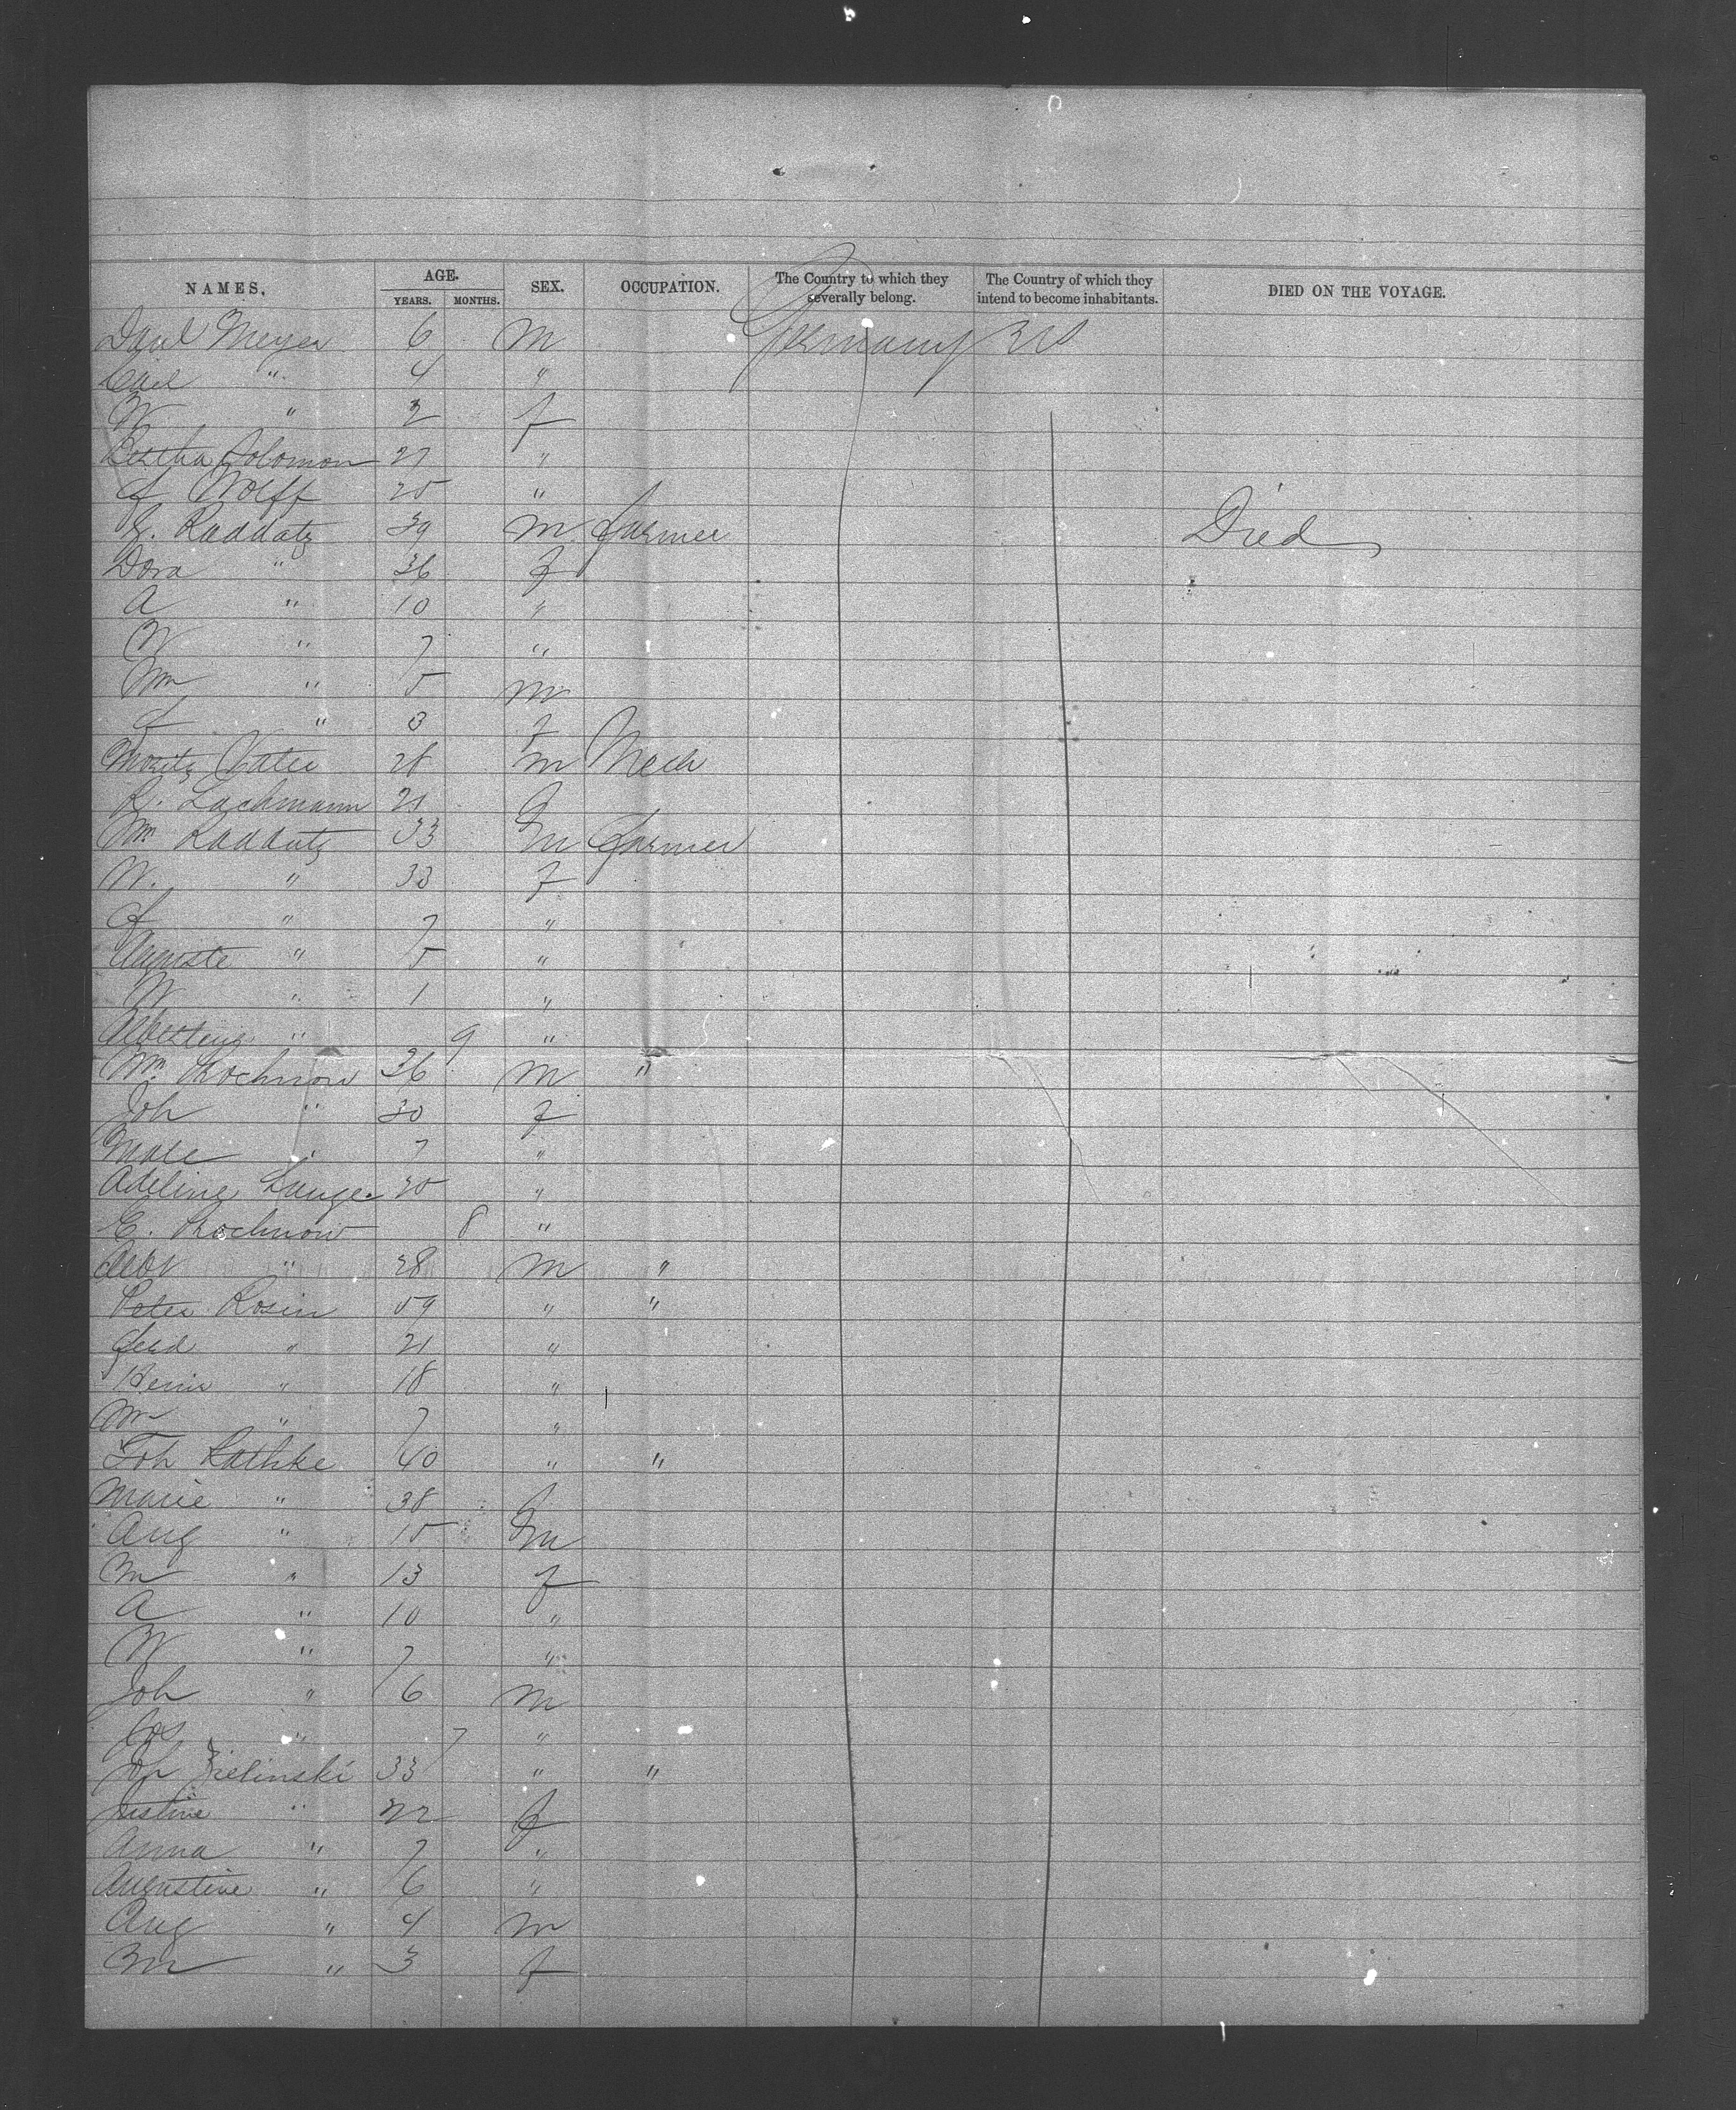 NAMES. AGE. SEX. OCCUPATION. The Country to which they severally belong. The Country of which they intend to become inhabitants. DIED ON THE VOYAGE.
YEARS. MONTHS.
Paul Meyer 6 M Germany US
Carl " 4 "
W " 2 f
Bertha Solomon 21 "
Wolff 25 "
Raddatz 39 M Farmer Died
Dora " 36 f
A " 10 "
W " 7 "
Wm " 5 M
" 3 f
Moritz Vater 28 M Mech
R. Lachmann 21 f
Wm Raddatz 33 M Farmer
W. " 33 f
" 7 "
Auguste " 5 "
W " 1 "
" 9 "
Wm Prochnow 36 M "
Joh " 30 f
Male " 7 "
Adeline Lange 20 "
E. Prochnow 8 "
Albt " 28 M "
Peter Rosin 59 " "
Ferd " 21 "
" 18 "
" 7 "
Joh Rathke 40 " "
Marie " 38 f
Aug " 15 M
M " 13 f
A " 10 "
W " 7 "
Joh " 6 M
Jos " 7 "
Joh Zielinski 33 " "
Justine " 22 f
Anna " 7 "
Augustine " 6 "
Aug " 4 M
M " 3 f